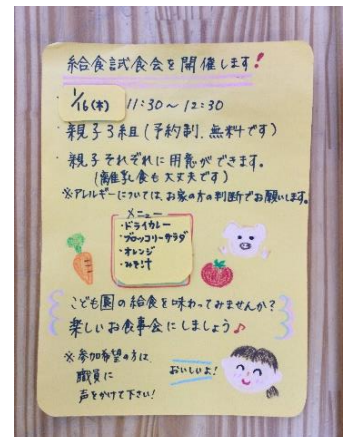 給食試食会を開催します!
1/16(木) 11:30～12:30
・親子3組(予約制、無料です)
・親子それぞれに用意ができます。
(離乳食も大丈夫です)
※アレルギーについては、お家の方の判断でお願いします。
メニュー
・ドライカレー
・ブロッコリーサラダ
・オレンジ
・みそ汁
こども園の給食を味わってみませんか?
楽しいお食事会にしましょう♪
※参加希望の方は、
職員に
声をかけて下さい!
おいしいよ!